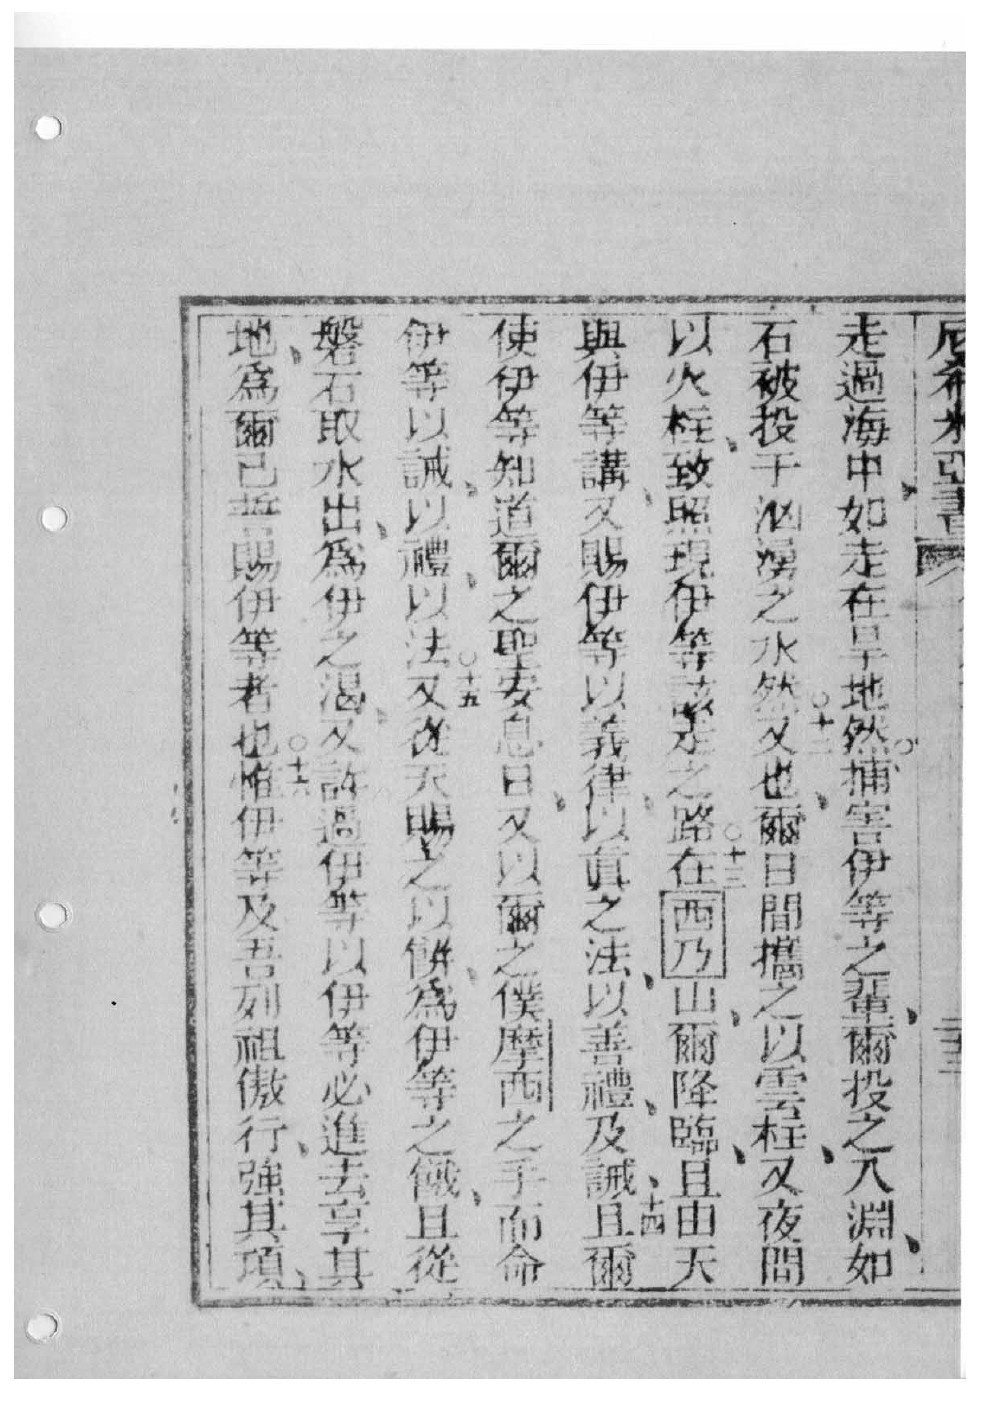 尼希米亞書
走過海中、如走在旱地○然捕害伊等之輩、爾投之入淵、如
石被投于汹湧之水然○十二又也、爾日間攜之以雲柱、又夜間
以火柱、致照現伊等該走之路○十三在西乃山、爾降臨、且由天
與伊等講、又賜伊等以義律、以眞之法、以善禮、及誡、○十四且爾
使伊等知道爾之聖安息日、又以爾之僕摩西之手而命
伊等以誡、以禮、以法○十五又從天賜之以餅、爲伊等之餓、且從
磐石取水出、爲伊之渴、又許過伊等以伊等必進去享其
地、爲爾已誓賜伊等者也○十六惟伊等及吾列祖傲行、強其項、